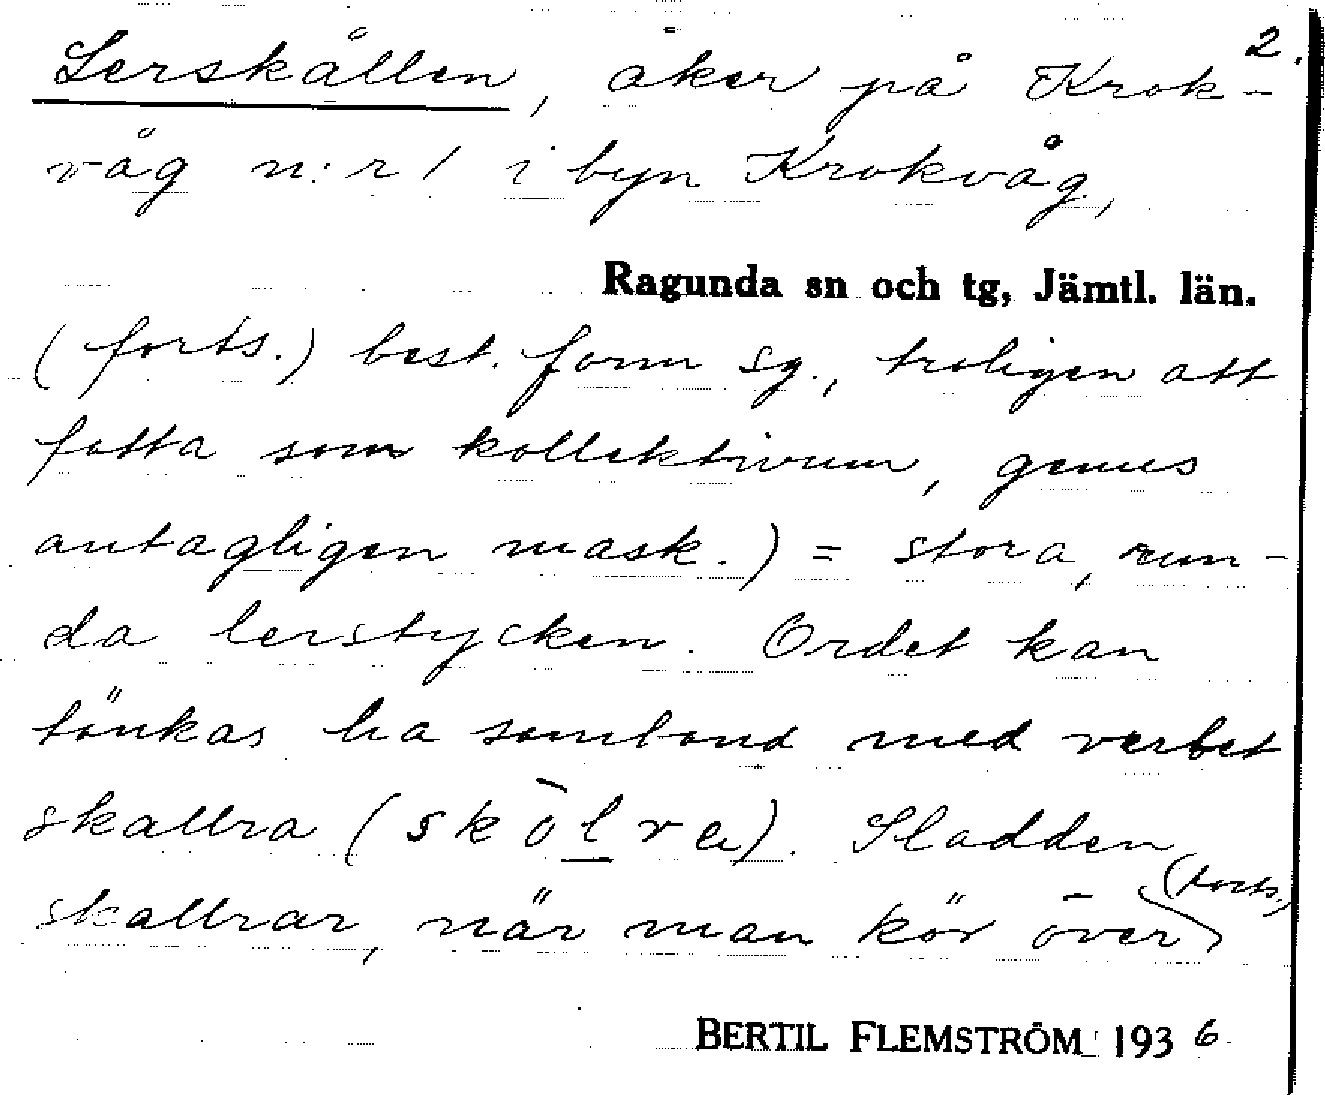 2.
Lerskållen, åker på Krok-
våg n:r 1 i byn Krokvåg,
Ragunda sn och tg, Jämtl. län.
(forts.) best. form sg., troligen att
fatta som kollektivum, genus
antagligen mask.) = stora, run-
da lerstycken. Ordet kan
tänkas ha samband med verbet
skallra (skò̄lra). Sladden
skallrar, när man kör över
(forts.)
BERTIL FLEMSTRÖM 1936